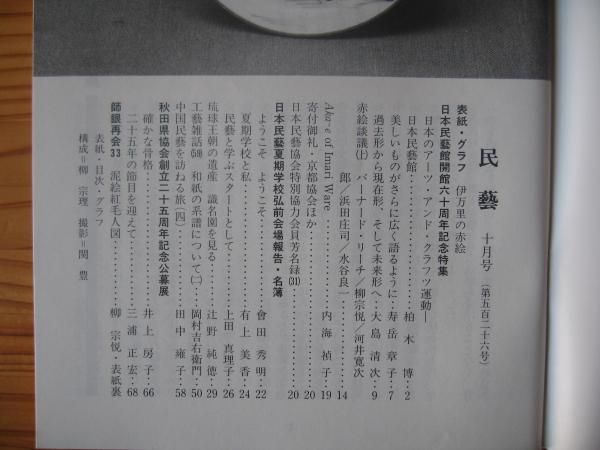 民藝 十月号 (第五百二十六号)
表紙・グラフ 伊万里の赤絵
日本民藝館開館六十周年記念特集
日本のアーツ・アンド・クラフツ運動―
日本民藝館‥‥柏木博‥2
美しいものがさらに広く語るように‥寿岳章子‥7
過去形から現在形、そして未来形へ‥大島清次‥9
赤絵談議(上) バーナード・リーチ/柳宗悦/河井寛次
郎/浜田庄司/水谷良一‥‥14
Aka-e of Imari Ware‥‥内海禎子‥19
寄付御礼・京都協会ほか‥‥20
日本民藝協会特別協力会員芳名録(31)‥‥20
日本民藝夏期学校弘前会場報告・名簿
ようこそ ようこそ‥‥會田秀明‥22
夏期学校と私‥‥有上美香‥24
民藝と学ぶスタートとして‥‥上田真理子‥26
琉球王朝の遺産 識名園を見る‥‥辻野純徳‥29
工藝雑話(59) 和紙の系譜について(二)‥岡村吉右衛門‥50
中国民藝を訪ねる旅(四)‥‥田中雍子‥58
秋田県協会創立二十五周年記念公募展
確かな骨格‥‥井上房子‥66
二十五年の節目を迎えて‥‥三浦正宏‥68
師銀再会33 泥絵紅毛人図‥‥柳宗悦・表紙裏
表紙・目次・グラフ
構成=柳宗理 撮影=関豊